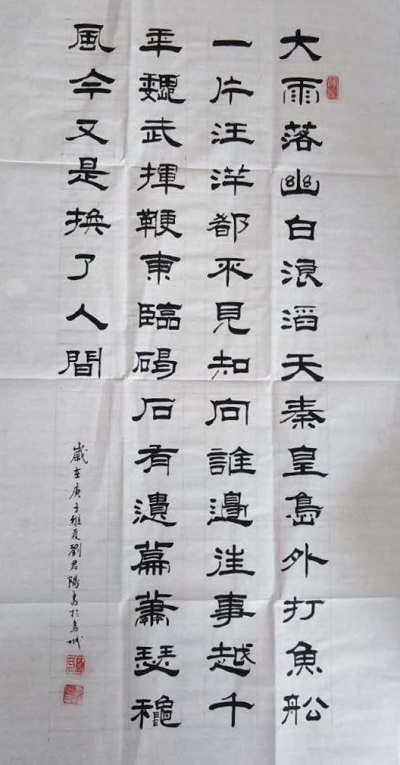 大雨落幽白浪滔天秦皇島外打魚船
一片汪洋都不見知向誰邊往事越千
年魏武揮鞭東臨碣石有遺篇蕭瑟穐
風今又是換了人間
歲在庚子維夏劉君陽書於城